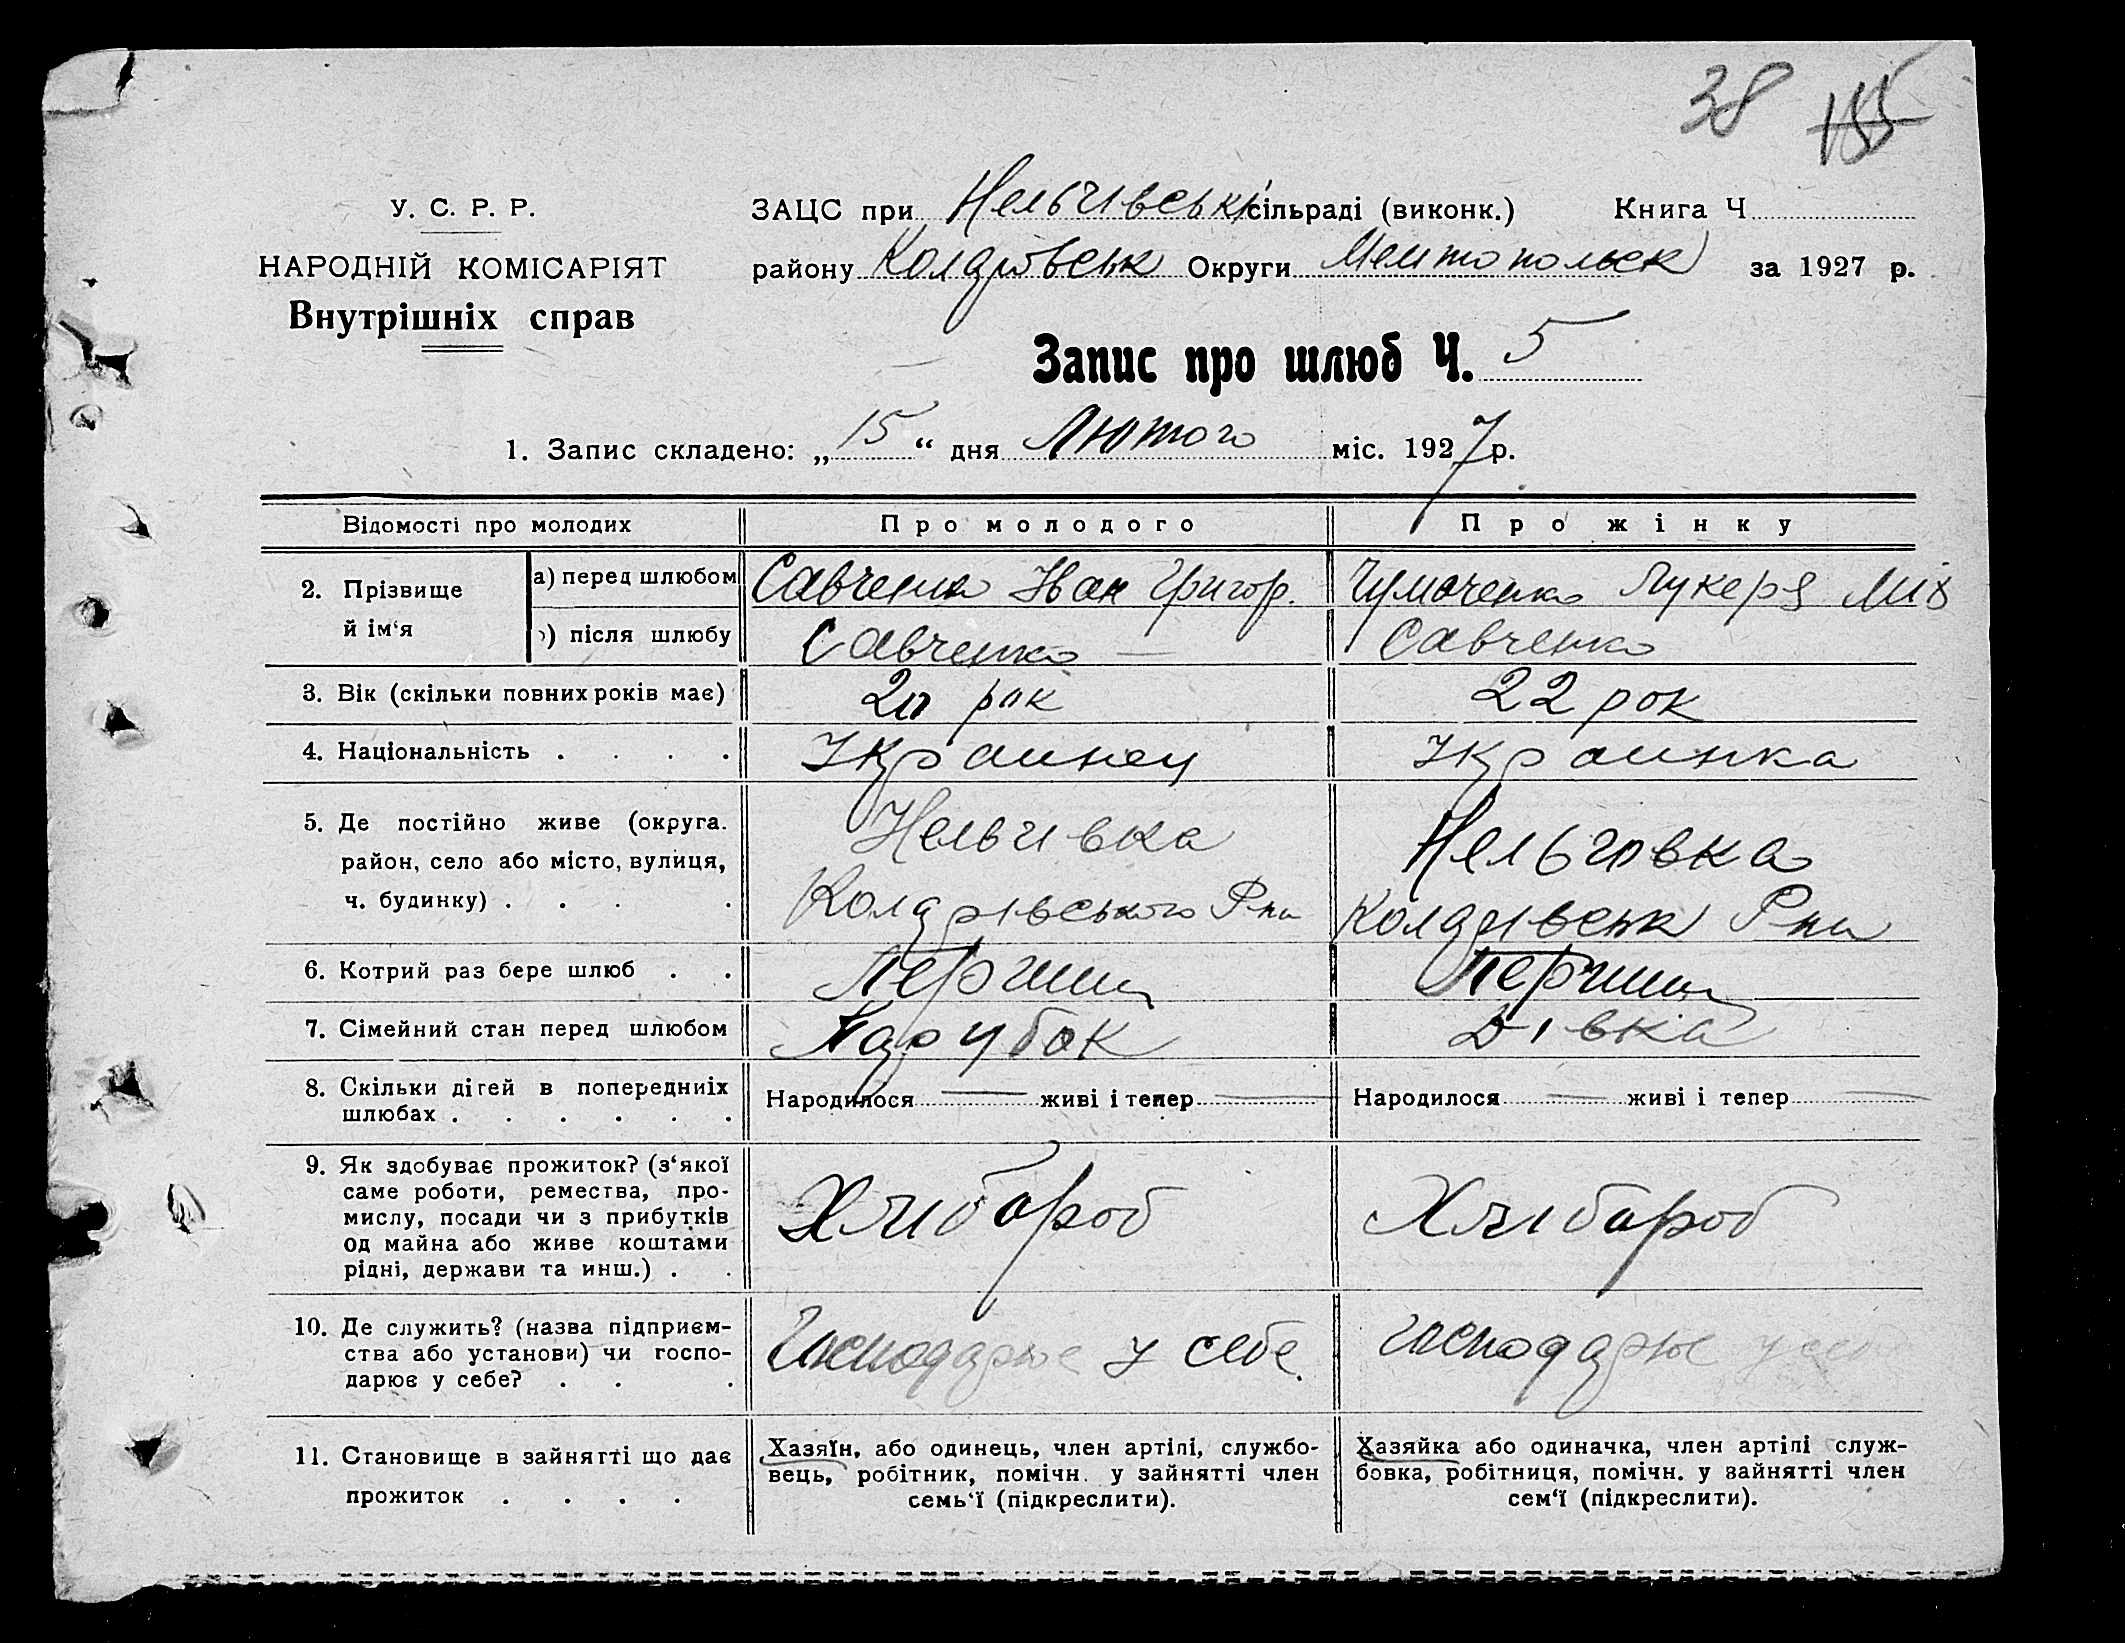 38 155
У. С. Р. Р.
НАРОДНІЙ КОМІСАРІЯТ
Внутрішніх справ
ЗАЦС при Нельгівській сільраді (виконк.) Книга Ч
району Колдрівськ Округи Мелитопольск за 1927 р.
Запис про шлюб Ч. 5
1. Запис складено: „15“ дня Лютого міс. 1927 р.
Відомості про молодих Про молодого Про жінку
2. Прізвище й ім‘я
а) перед шлюбом Савченко Иван Григор. Чумаченко Лукеря Мих
) після шлюбу Савченко — Савченко
3. Вік (скільки повних років має) 20 рок 22 рок
4. Національність . . . . Украинец Украинка
5. Де постійно живе (округа. район, село або місто, вулиця, ч. будинку) . . . .
Нельгивка
Колдрівського Р-на
Нельговка
Колдрівськ Р-на
6. Котрий раз бере шлюб . . Перший Перший
7. Сімейний стан перед шлюбом Парубок Дівка
8. Скільки дітей в попередниіх шлюбах . . . . . .
Народилося — живі і тепер — Народилося — живі і тепер —
9. Як здобуває прожиток? (з‘якої
саме роботи, ремества, про-
мислу, посади чи з прибутків
од майна або живе коштами
рідні, держави та инш.) . .
Хлибороб Хлибороб
10. Де служить? (назва підприєм-
ства або установи) чи госпо-
дарює у себе? . . .
Господарює у себе. Господарює у себе
11. Становище в зайнятті що дає
прожиток . . . .
Хазяїн, або одинець, член артілі, службо-
вець, робітник, помічн. у зайнятті член
семь‘ї (підкреслити).
Хазяйка або одиначка, член артілі служ-
бовка, робітниця, помічн. у зайнятті член
сем‘ї (підкреслити).